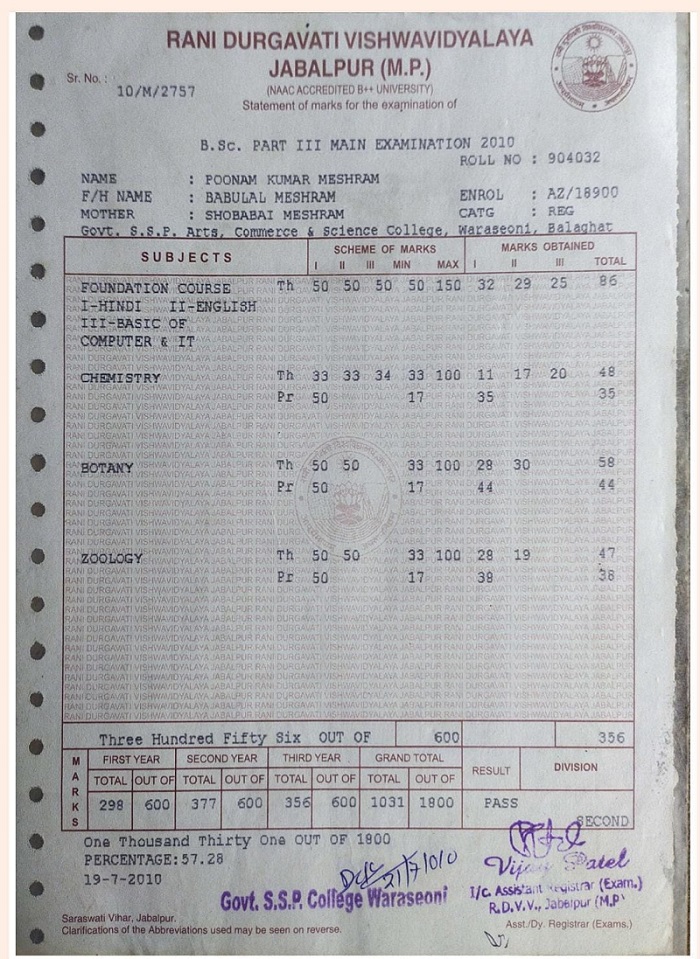 RANI DURGAVATI VISHWAVIDYALAYA
JABALPUR (M.P.)
Sr. No. : 10/M/2757
(NAAC ACCREDITED B++ UNIVERSITY)
Statement of marks for the examination of
B.Sc. PART III MAIN EXAMINATION 2010
ROLL NO : 904032
NAME : POONAM KUMAR MESHRAM
F/H NAME : BABULAL MESHRAM ENROL : AZ/18900
MOTHER : SHOBABAI MESHRAM CATG : REG
Govt. S.S.P. Arts, Commerce & Science College, Waraseoni, Balaghat
SUBJECTS SCHEME OF MARKS MARKS OBTAINED
I II III MIN MAX I II III TOTAL
FOUNDATION COURSE Th 50 50 50 50 150 32 29 25 86
I-HINDI II-ENGLISH
III-BASIC OF
COMPUTER & IT
CHEMISTRY Th 33 33 34 33 100 11 17 20 48
Pr 50 17 35 35
BOTANY Th 50 50 33 100 28 30 58
Pr 50 17 44 44
ZOOLOGY Th 50 50 33 100 28 19 47
Pr 50 17 38 38
Three Hundred Fifty Six OUT OF 600 356
MARKS
FIRST YEAR SECOND YEAR THIRD YEAR GRAND TOTAL RESULT DIVISION
TOTAL OUT OF TOTAL OUT OF TOTAL OUT OF TOTAL OUT OF
298 600 377 600 356 600 1031 1800 PASS SECOND
One Thousand Thirty One OUT OF 1800
PERCENTAGE:57.28
19-7-2010
Govt. S.S.P. College Waraseoni
Vijay Patel
I/c. Assistant Registrar (Exam.)
R.D.V.V., Jabalpur (M.P
Saraswati Vihar, Jabalpur.
Clarifications of the Abbreviations used may be seen on reverse.
Asst./Dy. Registrar (Exams.)